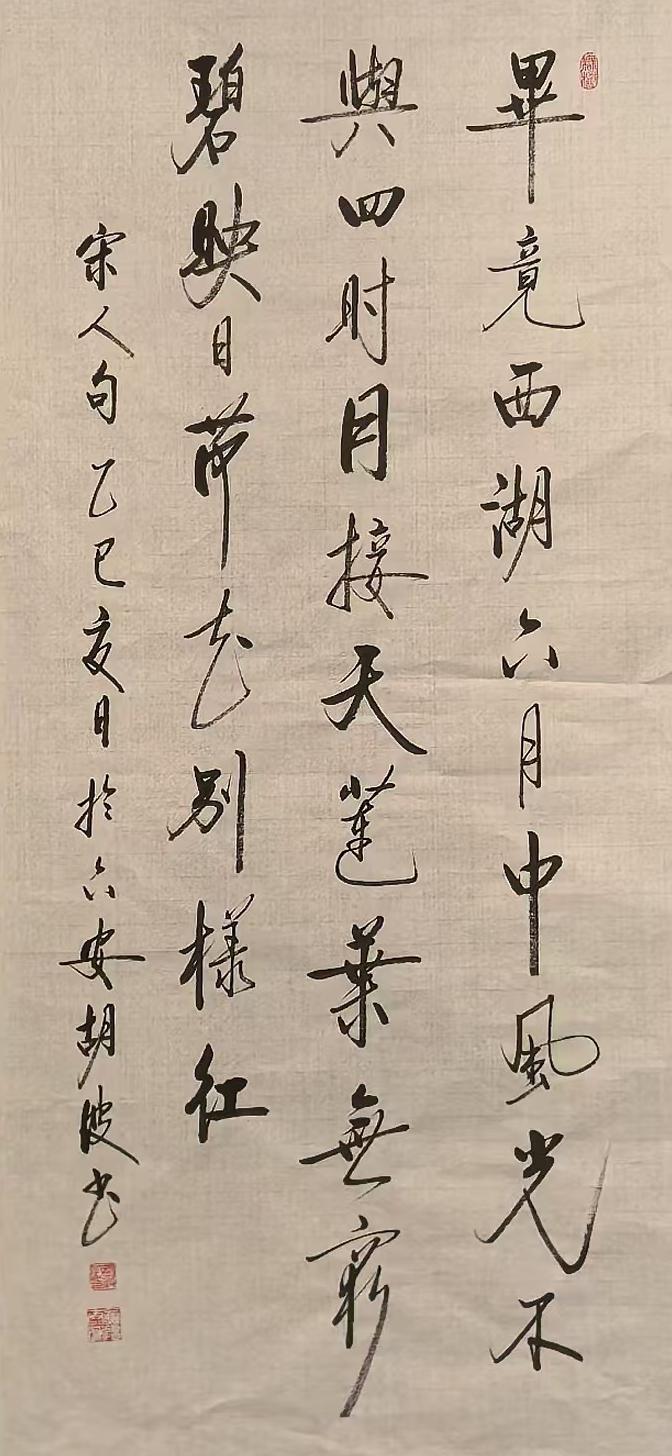 畢竟西湖六月中風光不
與四时同接天蓮葉無窮
碧映日荷花別樣紅
宋人句乙巳夏月於六安胡波书